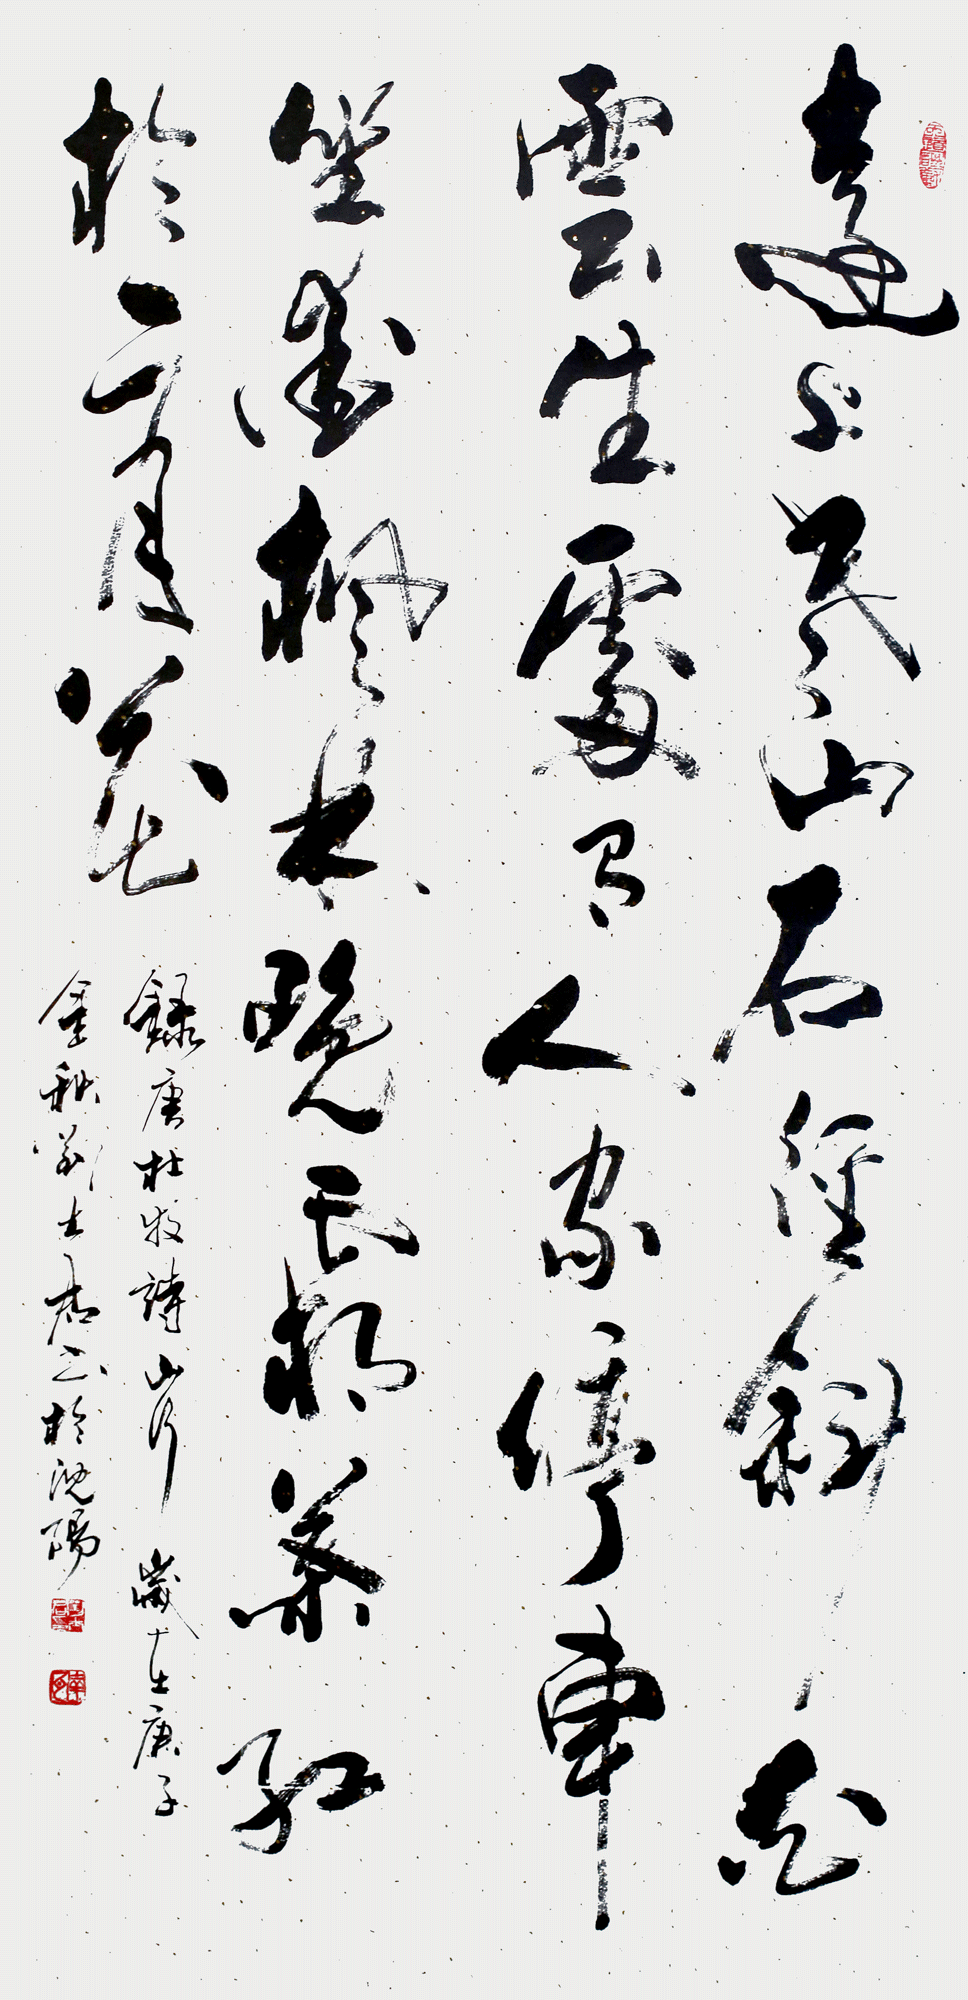 遠上寒山石徑斜白
雲生處有人家停車
坐愛楓林晚霜葉紅
於二月花
錄唐杜牧詩山行 歲在庚子
金秋劉士書於沈陽